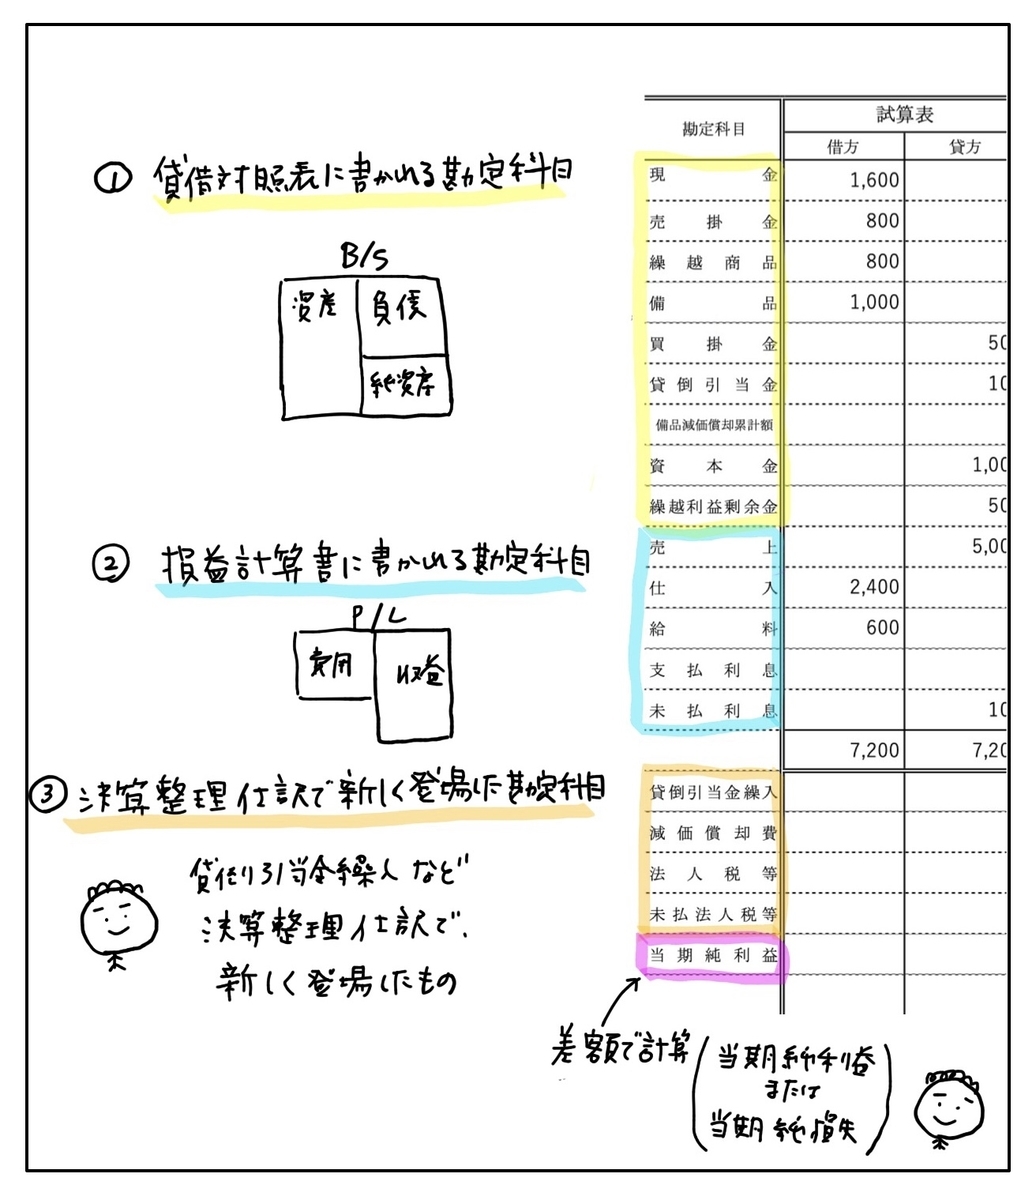 ① 貸借対照表に書かれる勘定科目
B/S
資産 負債
純資産
② 損益計算書に書かれる勘定科目
P/L
費用 収益
③ 決算整理仕訳で新しく登場した勘定科目
貸倒引当金繰入など
決算整理仕訳で、
新しく登場したもの
勘定科目 試算表
借方 貸方
現金 1,600
売掛金 800
繰越商品 800
備品 1,000
買掛金 50
貸倒引当金 10
備品減価償却累計額
資本金 1,00
繰越利益剰余金 50
売上 5,00
仕入 2,400
給料 600
支払利息
未払利息 10
7,200 7,20
貸倒引当金繰入
減価償却費
法人税等
未払法人税等
当期純利益
差額で計算
(当期純利益
または
当期純損失)